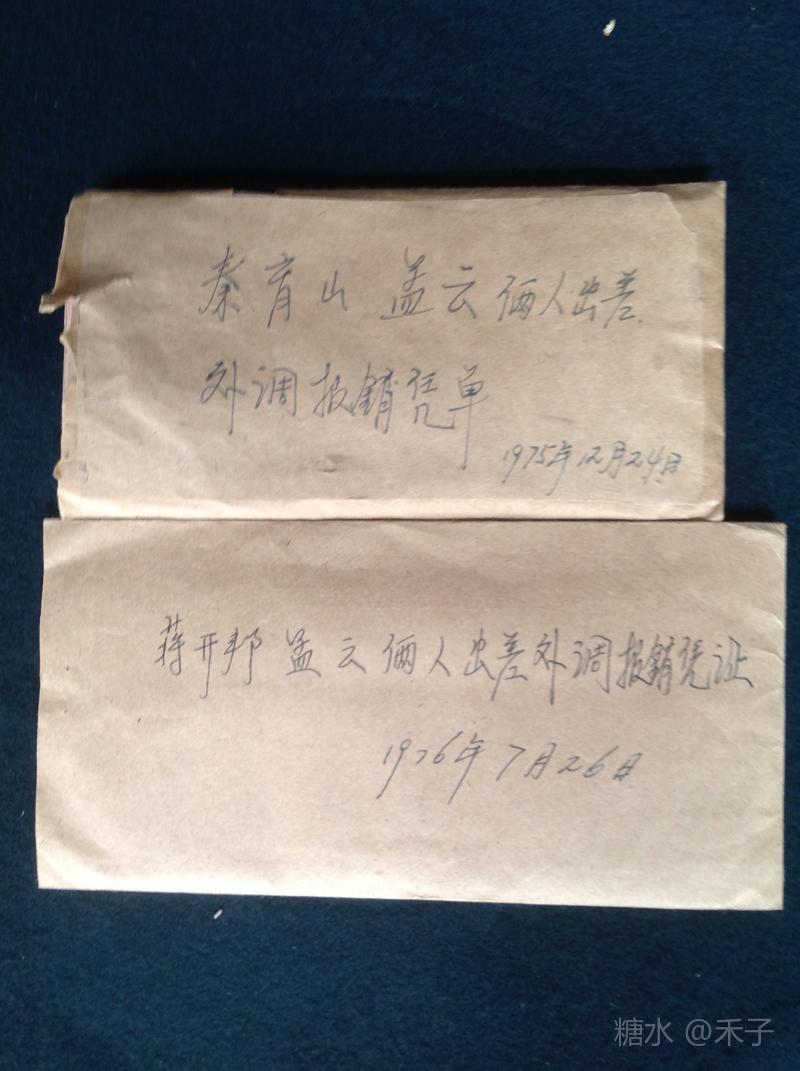 秦育山 孟云俩人出差
外调报销凭单
1975年12月24日
蒋开邦 孟云俩人出差外调报销凭证
1976年7月26日
糖水 @禾子